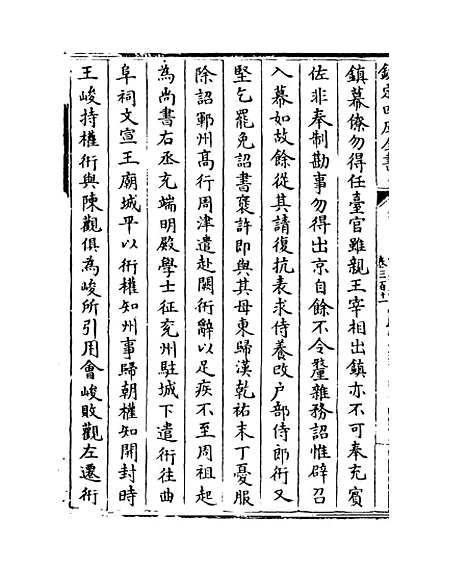 鎮幕僚勿得任臺官雖親王宰相出鎮亦不可奉充賔
佐非奉制勘事勿得出京自餘不令釐雜務詔惟辟召
入幕如故餘從其請復抗表求侍養改戸部侍郎衎又
堅乞罷免詔書褒許即與其母東歸漢乾祐末丁憂服
除詔鄆州髙行周津遣赴闕衎辭以足疾不至周祖起
為尚書右丞充端明殿學士征兖州駐城下遣衎往曲
阜祠文宣王廟城平以衎權知州事歸朝權知開封時
王峻持權衎與陳觀俱為峻所引用會峻敗觀左遷衎
欽定四庫全書
卷三百十一